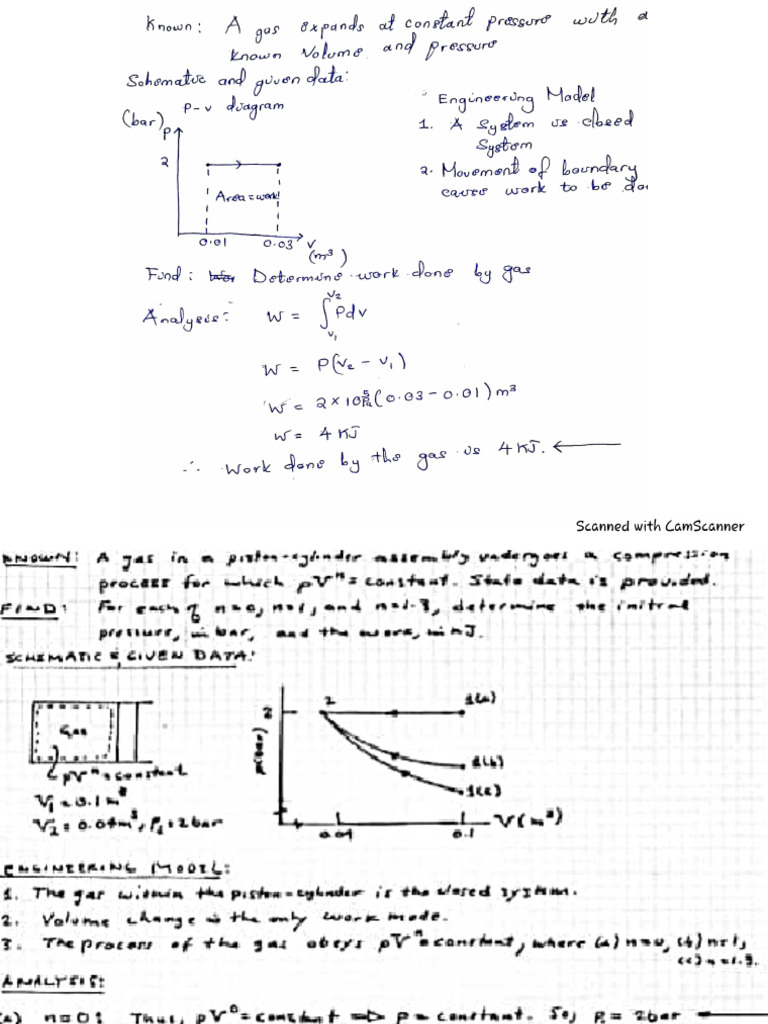 Known: A gas expands at constant pressure with a
known volume and pressure
Schematic and given data:
P-v diagram
Engineering Model
(bar) P
1. A System is closed
System
2
2. Movement of boundary
causes work to be do
Area = work
0.01 0.03 V
(m³)
Find: Determine work done by gas
Analysis: W = ∫ᵥ₁ᵛ² Pdv
W = P(v₂ - v₁)
W = 2 × 10⁵ Pa (0.03 - 0.01) m³
W = 4 KJ
∴ Work done by the gas is 4 KJ. ←
Scanned with CamScanner
KNOWN: A gas in a piston-cylinder assembly undergoes a compression
process for which pVⁿ = constant. State data is provided.
FIND: For each of n=0, n=1, and n=1.3, determine the initial
pressure, in bar, and the work, in kJ.
SCHEMATIC & GIVEN DATA:
Gas
pVⁿ = constant
V₁ = 0.1 m³
V₂ = 0.04 m³, P₂ = 2 bar
p(bar)
2
2
1(a)
1(b)
1(c)
0.04 0.1 V(m³)
ENGINEERING MODEL:
1. The gas within the piston-cylinder is the closed system.
2. Volume change is the only work mode.
3. The process of the gas obeys pVⁿ = constant, where (a) n=0, (b) n=1,
(c) n=1.3.
ANALYSIS:
(a) n=0: Thus, pV⁰ = constant ⇒ p = constant. So, P₁ = 2 bar ←